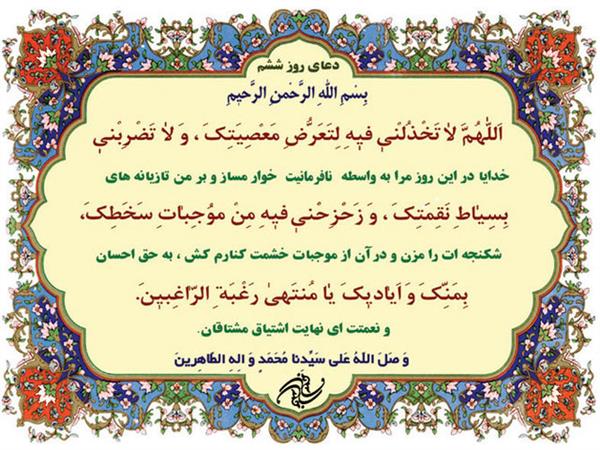 دعای روز ششم
بِسْمِ اللهِ الرَّحْمنِ الرَّحیمِ
اَللّٰهُمَّ لاٰ تَخْذُلْنی فیهِ لِتَعَرُّضِ مَعْصِیَتِکَ ، وَ لاٰ تَضْرِبْنی
خدایا در این روز مرا به واسطه نافرمانیت خوار مساز و بر من تازیانه های
بِسِیٰاطِ نَقِمَتِکَ ، وَ زَحْزِحْنی فیهِ مِنْ مُوجِبٰاتِ سَخَطِکَ،
شکنجه ات را مزن و در آن از موجبات خشمت کنارم کش ، به حق احسان
بِمَنِّکَ وَ اَیادیکَ یٰا مُنْتَهیٰ رَغْبَةِ الرّاغِبینَ.
و نعمتت ای نهایت اشتیاق مشتاقان.
وَ صَلَ اللهُ عَلی سَیِّدِنا مُحَمَدٍ وَ الِهِ الطّاهِرینَ